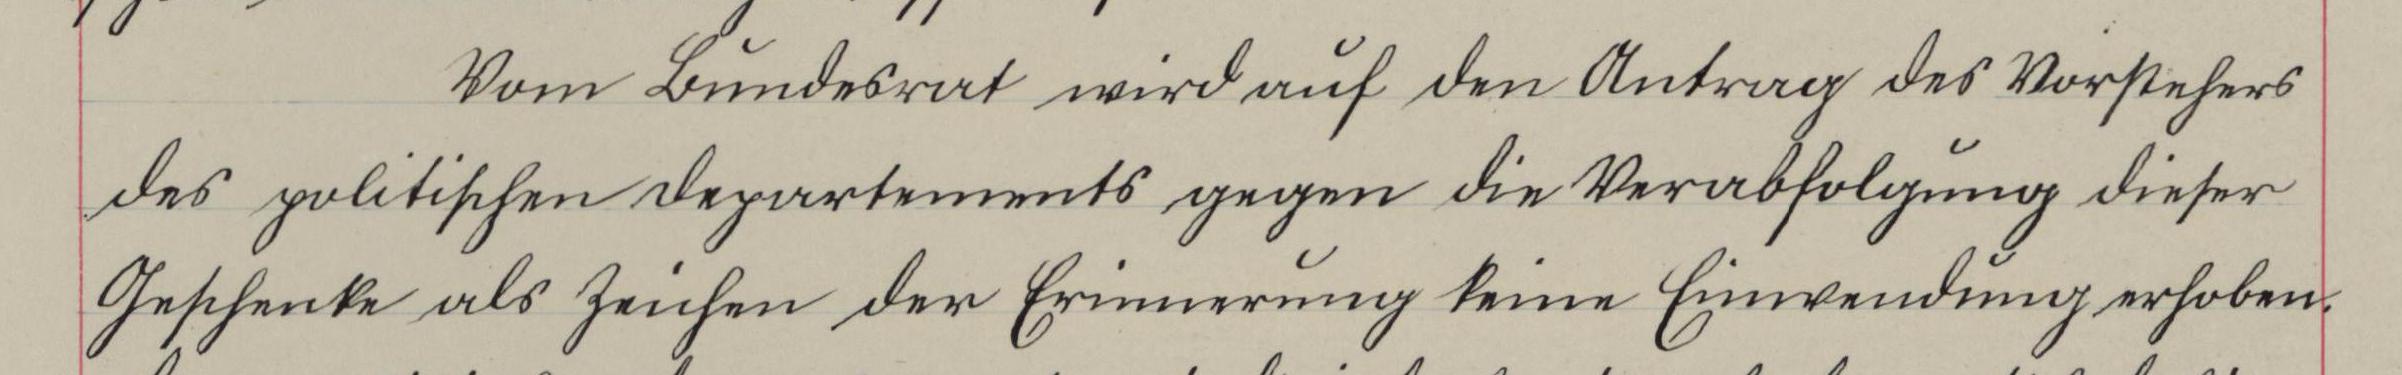 Vom Bundesrat wird auf den Antrag des Vorstehers
des politischen Departements gegen die Verabfolgung dieser
Geschenke als Zeichen der Erinnerung keine Einwendung erhoben.